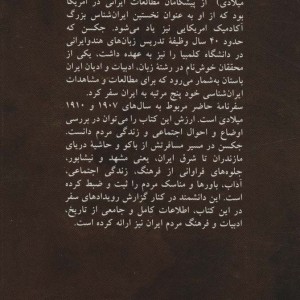 میلادی) از پیشگامان مطالعات ایرانی در امریکا
بود که از او به عنوان نخستین ایران‌شناس بزرگ
آکادمیک امریکایی نیز یاد می‌شود. جکسن که
حدود ۴۰ سال وظیفهٔ تدریس زبان‌های هندوایرانی
در دانشگاه کلمبیا را نیز به عهده داشت، یکی از
محققان خوش‌نام در رشتهٔ زبان، ادبیات و ادیان ایران
باستان به‌شمار می‌رود که برای مطالعات و مشاهدات
ایران‌شناسی خود پنج مرتبه به ایران سفر کرد.
سفرنامهٔ حاضر مربوط به سال‌های ۱۹۰۷ و ۱۹۱۰
میلادی است. ارزش این کتاب را می‌توان در بررسی
اوضاع و احوال اجتماعی و زندگی مردم دانست.
جکسن در مسیر مسافرتش از باکو و حاشیهٔ دریای
مازندران تا شرق ایران، یعنی مشهد و نیشابور،
جلوه‌های فراوانی از فرهنگ، زندگی اجتماعی،
آداب، باورها و مناسک مردم را ثبت و ضبط کرده
است. این دانشمند در کنار گزارش رویدادهای سفر
در این کتاب، اطلاعات کامل و جامعی از تاریخ،
ادبیات و فرهنگ مردم ایران نیز ارائه کرده است.